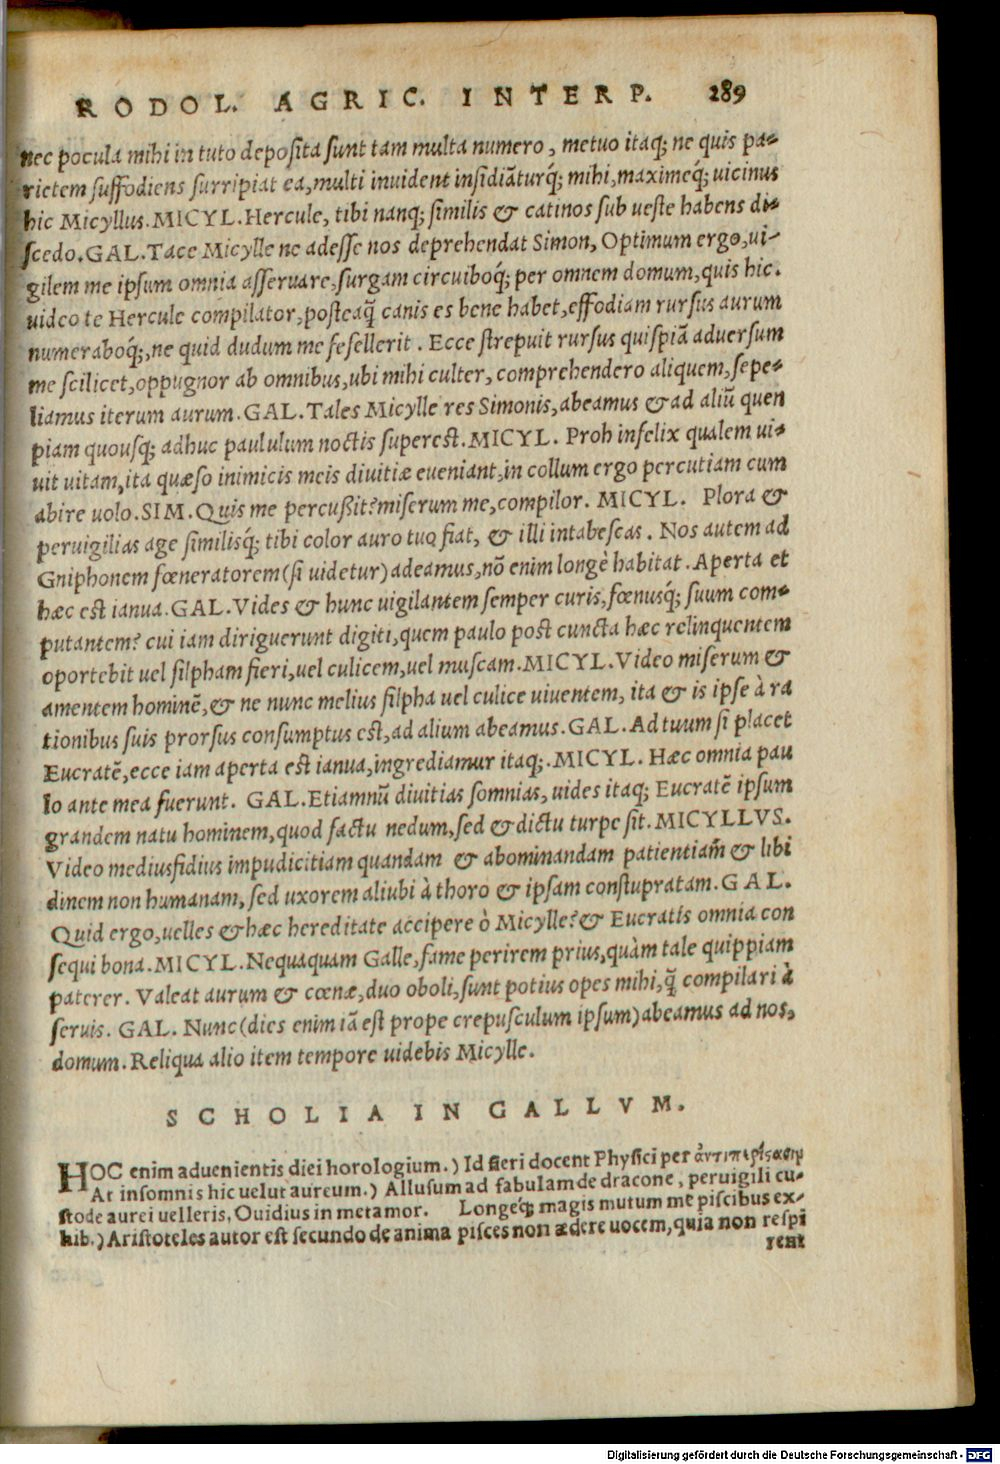 RODOL. AGRIC. INTERP. 289
nec pocula mihi in tuto deposita sunt tam multa numero, metuo itaq; ne quis pa-
rietem suffodiens surripiat ea, multi inuident insidiãturq́; mihi, maximeq́; uicinus
hic Micyllus. MICYL. Hercule, tibi nanq; similis & catinos sub ueste habens di-
scedo. GAL. Tace Micylle ne adesse nos deprehendat Simon, Optimum ergo, ui-
gilem me ipsum omnia asseruare, surgam circuiboq́; per omnem domum, quis hic.
uideo te Hercule compilator, posteaq̃ canis es bene habet, effodiam rursus aurum
numeraboq́;, ne quid dudum me fesellerit. Ecce strepuit rursus quispiã aduersum
me scilicet, oppugnor ab omnibus, ubi mihi culter, comprehendero aliquem, sepe-
liamus iterum aurum. GAL. Tales Micylle res Simonis, abeamus & ad aliũ quen
piam quousq; adhuc paululum noctis superest. MICYL. Proh infelix qualem ui-
uit uitam, ita quæso inimicis meis diuitiæ eueniant, in collum ergo percutiam cum
abire uolo. SIM. Quis me percußit? miserum me, compilor. MICYL. Plora &
peruigilias age similisq́; tibi color auro tuo fiat, & illi intabescas. Nos autem ad
Gniphonem fœneratorem (si uidetur) adeamus, nõ enim longè habitat. Aperta et
hæc est ianua. GAL. Vides & hunc uigilantem semper curis, fœnusq́; suum com-
putantem? cui iam diriguerunt digiti, quem paulo post cuncta hæc relinquentem
oportebit uel silpham fieri, uel culicem, uel muscam. MICYL. Video miserum &
amentem hominẽ, & ne nunc melius silpha uel culice uiuentem, ita & is ipse à ra
tionibus suis prorsus consumptus est, ad alium abeamus. GAL. Ad tuum si placet
Eucratẽ, ecce iam aperta est ianua, ingrediamur itaq;. MICYL. Hæc omnia pau
lo ante mea fuerunt. GAL. Etiamnũ diuitias somnias, uides itaq; Eucratẽ ipsum
grandem natu hominem, quod factu nedum, sed & dictu turpe sit. MICYLLVS.
Video mediusfidius impudicitiam quandam & abominandam patientiam̃ & libi
dinem non humanam, sed uxorem aliubi à thoro & ipsam constupratam. GAL.
Quid ergo, uelles & hæc hereditate accipere ò Micylle? & Eucratis omnia con
sequi bona. MICYL. Nequaquam Galle, fame perirem prius, quàm tale quippiam
paterer. Valeat aurum & cœnæ, duo oboli, sunt potius opes mihi, q̃ compilari à
seruis. GAL. Nunc (dies enim iã est prope crepusculum ipsum) abeamus ad nos,
domum. Reliqua alio item tempore uidebis Micylle.
SCHOLIA IN GALLVM.
HOC enim aduenientis diei horologium.) Id fieri docent Physici per
At insomnis hic uelut aureum.) Allusum ad fabulam de dracone, peruigili cu-
stode aurei uelleris, Ouidius in metamor. Longeq́; magis mutum me piscibus ex-
hib.) Aristoteles autor est secundo de anima pisces non ædere uocem, quia non respi
rent
Digitalisierung gefördert durch die Deutsche Forschungsgemeinschaft - DFG